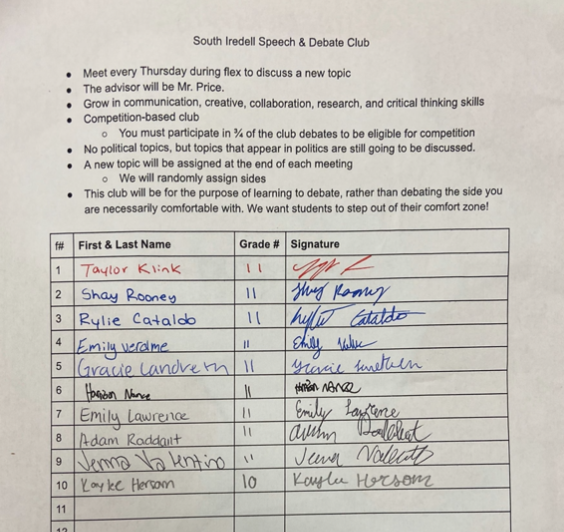 South Iredell Speech & Debate Club
• Meet every Thursday during flex to discuss a new topic
• The advisor will be Mr. Price.
• Grow in communication, creative, collaboration, research, and critical thinking skills
• Competition-based club
○ You must participate in ¾ of the club debates to be eligible for competition
• No political topics, but topics that appear in politics are still going to be discussed.
• A new topic will be assigned at the end of each meeting
○ We will randomly assign sides
• This club will be for the purpose of learning to debate, rather than debating the side you
are necessarily comfortable with. We want students to step out of their comfort zone!
f# First & Last Name Grade # Signature
1 Taylor Klink 11
2 Shay Rooney 11 Shay Rooney
3 Rylie Cataldo 11 Rylie Cataldo
4 Emily 11 Emily
5 Gracie Landreth 11
6 11
7 Emily Lawrence 11 Emily Lawrence
8 Adam Roddant 11
9 Jenna Valentino 11 Jenna
10 Kaylee Hersom 10 Kaylee Hersom
11